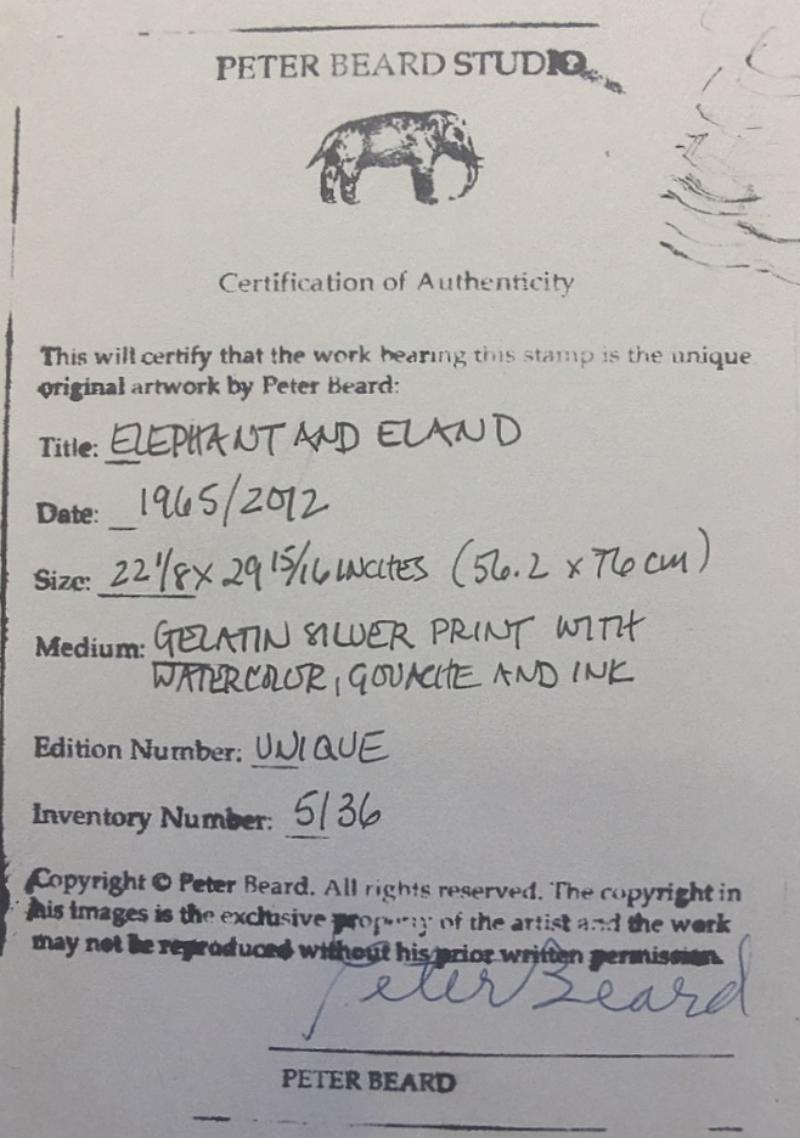 PETER BEARD STUDIO
Certification of Authenticity
This will certify that the work bearing this stamp is the unique
original artwork by Peter Beard:
Title: ELEPHANT AND ELAND
Date: 1965/2012
Size: 22 1/8 x 29 15/16 INCHES (56.2 x 76 cm)
Medium: GELATIN SILVER PRINT WITH
WATERCOLOR, GOUACHE AND INK
Edition Number: UNIQUE
Inventory Number: 5136
Copyright © Peter Beard. All rights reserved. The copyright in
his images is the exclusive property of the artist and the work
may not be reproduced without his prior written permission.
Peter Beard
PETER BEARD